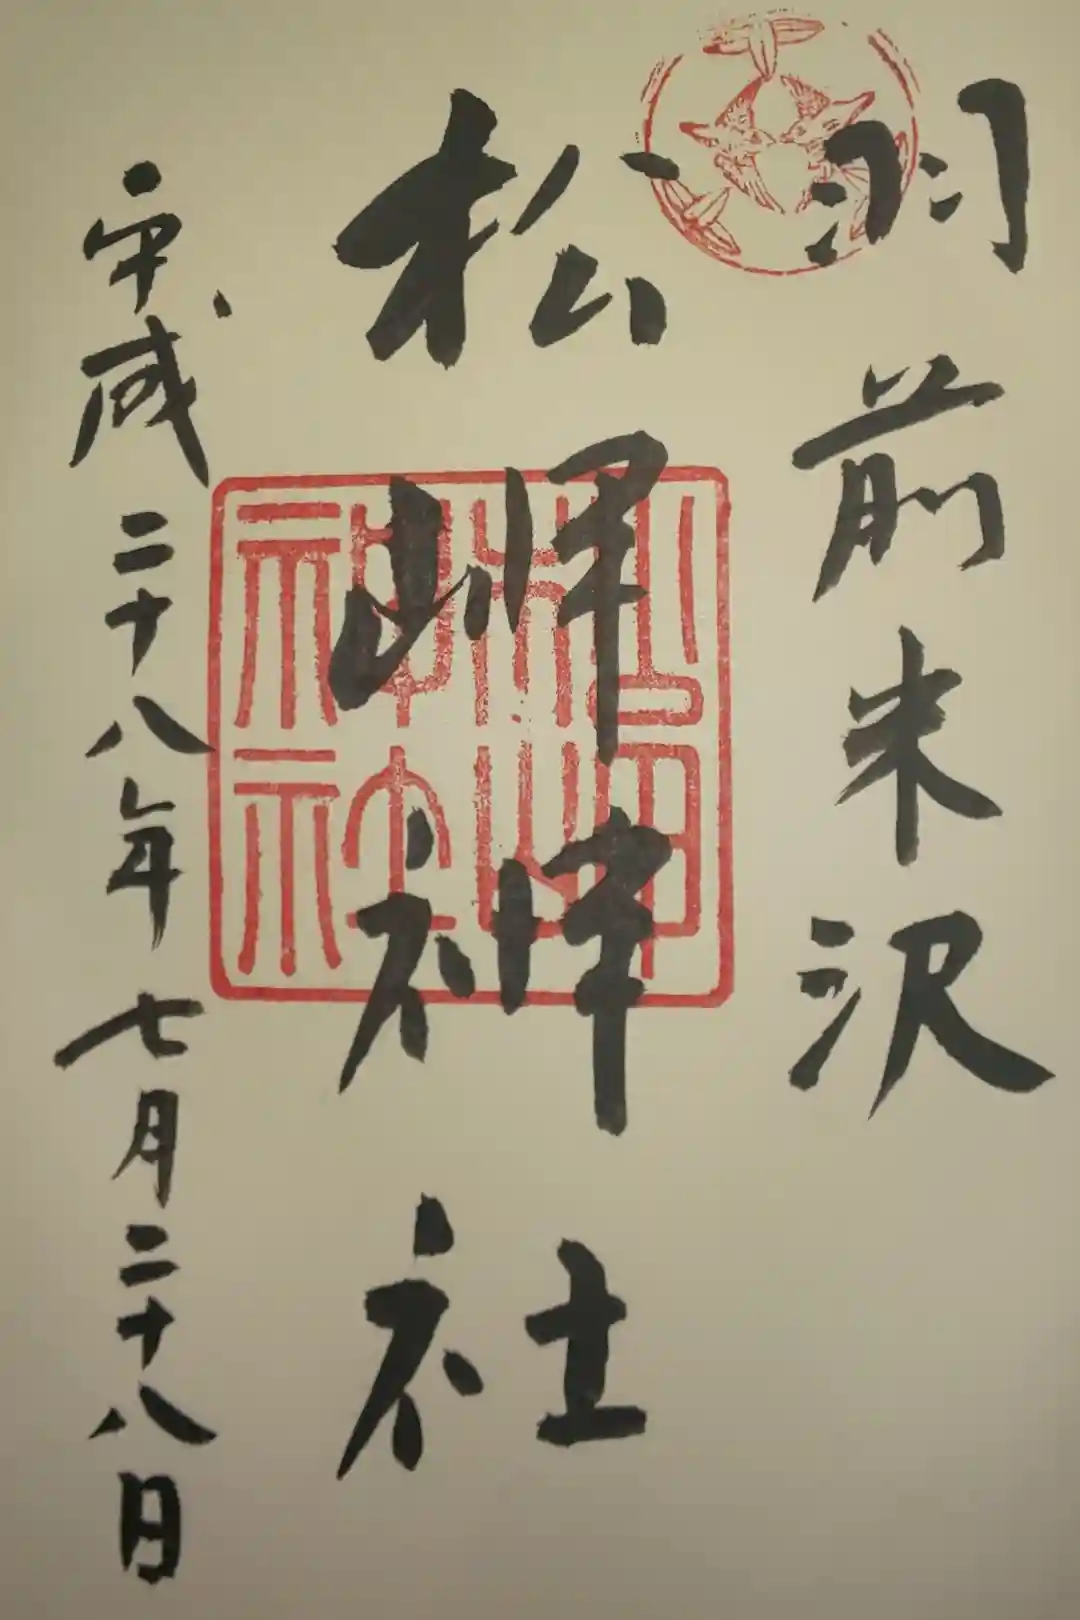 羽前米沢
松岬神社
平成二十八年七月二十八日
松岬
神社